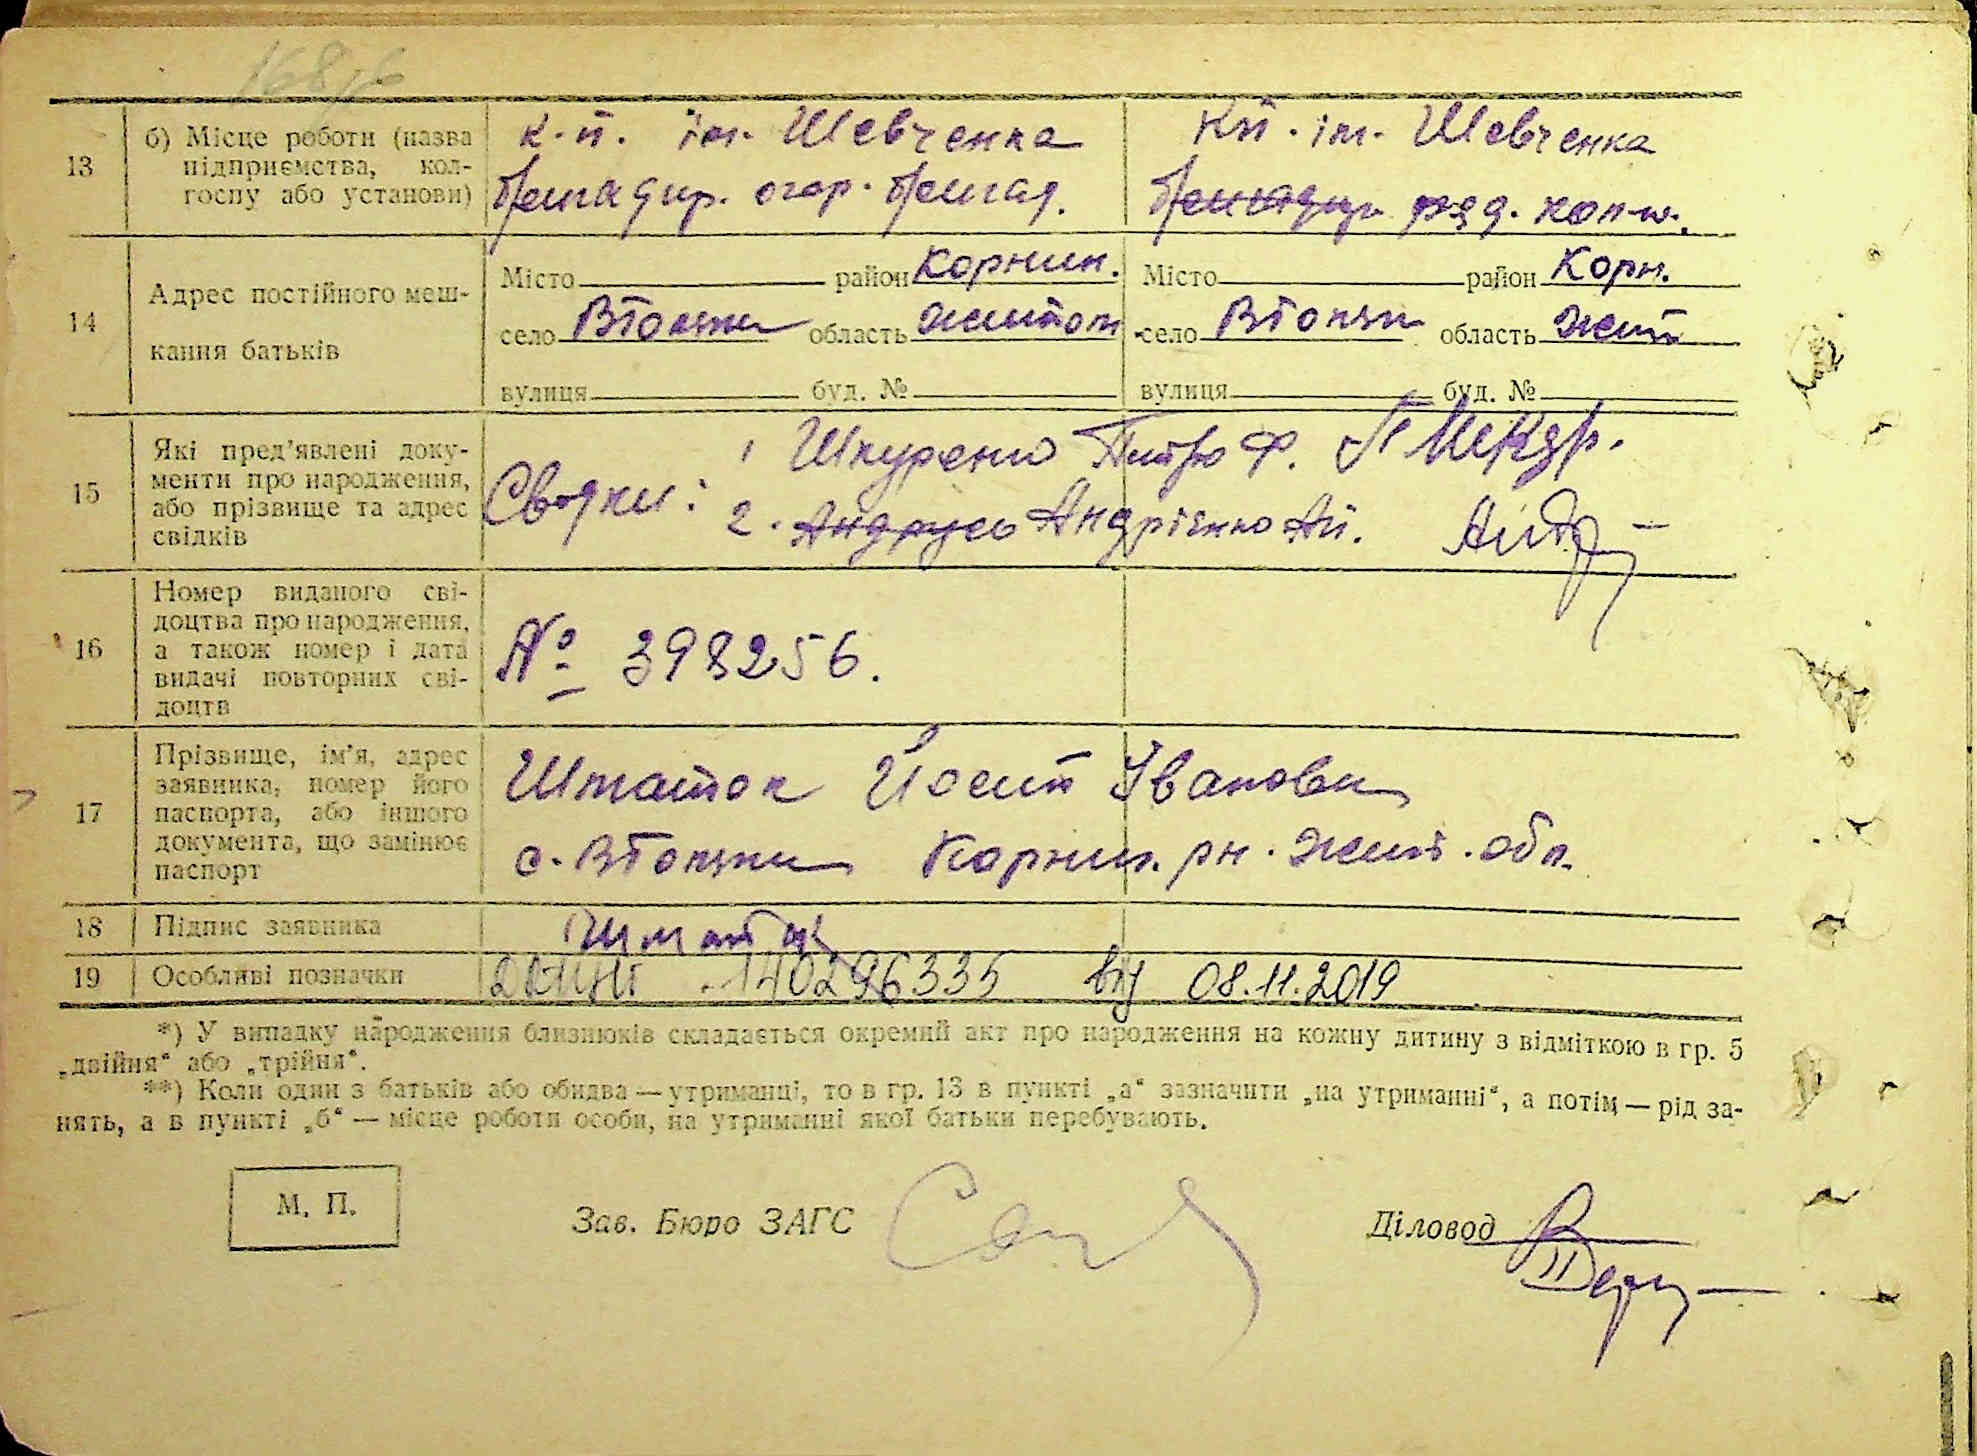 13
б) Місце роботи (назва підприємства, колгоспу або установи)
к.п. ім. Шевченка
бригадир. огор. бригад.
Кп. ім. Шевченка
ряд. кол-м.
14
Адрес постійного мешкання батьків
Місто район Корнин.
село Втопки область Житом.
вулиця буд. №
Місто район Корн.
село Втопки область Жит
вулиця буд. №
15
Які пред'явлені документи про народження, або прізвище та адрес свідків
Свідки: 1 Шкуренко Петро Ф.
2. Андрусь Андрієнко Ап.
16
Номер виданого свідоцтва про народження, а також номер і дата видачі повторних свідоцтв
№ 398256.
17
Прізвище, ім'я, адрес заявника, номер його паспорта, або іншого документа, що замінює паспорт
Шматок Йосип Іванович
с. Втопки Корнин. рн. Жит. обл.
18
Підпис заявника
Шматок
19
Особливі позначки
140296335 від 08.11.2019
*) У випадку народження близнюків складається окремий акт про народження на кожну дитину з відміткою в гр. 5
„двійня“ або „трійня“.
**) Коли один з батьків або обидва — утриманці, то в гр. 13 в пункті „а“ зазначити „на утриманні“, а потім — рід за-
нять, а в пункті „б“ — місце роботи особи, на утриманні якої батьки перебувають.
М. П.
Зав. Бюро ЗАГС
Діловод